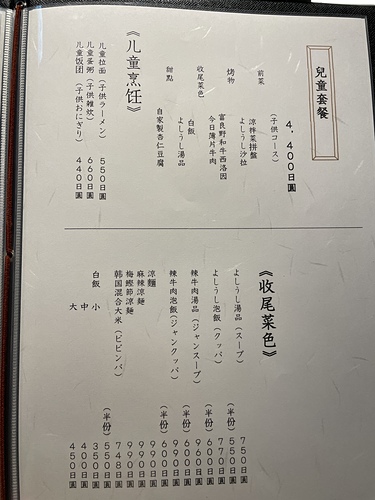 兒童套餐
4,400日圓
(子供コース)
前菜
涼拌菜拼盤
よしうし沙拉
烤物
富良野和牛西洛因
今日薄片牛肉
收尾菜色
白飯
よしうし湯品
甜點
自家製杏仁豆腐
《儿童烹饪》
儿童拉面(子供ラーメン) 550日圓
儿童蛋粥(子供雑炊) 660日圓
儿童饭团(子供おにぎり) 440日圓
《收尾菜色》
よしうし湯品(スープ) 750日圓
(半份) 550日圓
よしうし泡飯(クッパ) 770日圓
(半份) 600日圓
辣牛肉湯品(ジャンスープ) 960日圓
(半份) 日圓
辣牛肉泡飯(ジャンクッパ) 990日圓
(半份) 600日圓
涼麵 990日圓
麻辣涼麵 990日圓
梅鰹節涼麵 990日圓
韩国混合大米(ビビンバ) 748日圓
(半份) 550日圓
白飯 小 350日圓
中 400日圓
大 450日圓